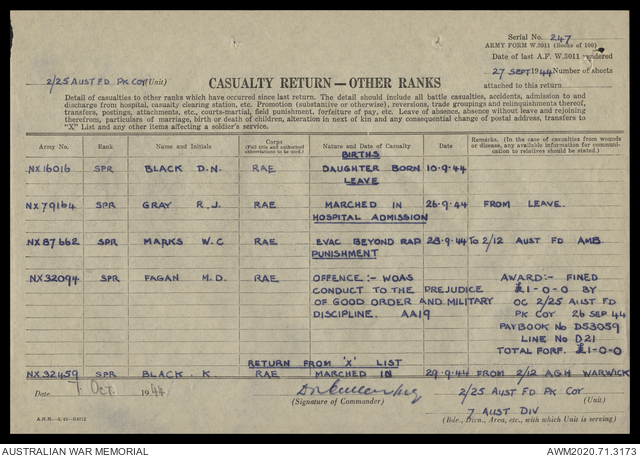 Serial No. 247
ARMY FORM W.3011 (Books of 100)
Date of last A.F. W.3011 rendered
27 SEPT 1944 Number of sheets
attached to this return
2/25 AUST FD PK COY (Unit)
CASUALTY RETURN—OTHER RANKS
Detail of casualties to other ranks which have occurred since last return. The detail should include all battle casualties, accidents, admission to and
discharge from hospital, casualty clearing station, etc. Promotion (substantive or otherwise), reversions, trade groupings and relinquishments thereof,
transfers, postings, attachments, etc., courts-martial, field punishment, forfeiture of pay, etc. Leave of absence, absence without leave and rejoining
therefrom, particulars of marriage, birth or death of children, alteration in next of kin and any consequential change of postal address, transfers to
"X" List and any other items affecting a soldier's service.
Army No. Rank Name and Initials Corps (Full title and authorised abbreviations to be used.) Nature and Date of Casualty Date Remarks. (In the case of casualties from wounds or disease, any available information for communication to relatives should be stated.)
BIRTHS
NX16016 SPR BLACK D.N. RAE DAUGHTER BORN 10-9-44
LEAVE
NX79164 SPR GRAY R.J. RAE MARCHED IN 26-9-44 FROM LEAVE.
HOSPITAL ADMISSION
NX87662 SPR MARKS W.C RAE EVAC BEYOND RAP 28-9-44 TO 2/12 AUST FD AMB.
PUNISHMENT
NX32094 SPR FAGAN M.D. RAE OFFENCE:- WOAS AWARD:- FINED
CONDUCT TO THE PREJUDICE £1-0-0 BY
OF GOOD ORDER AND MILITARY OC 2/25 AUST FD
DISCIPLINE. AA19 PK COY 26 SEP 44
PAYBOOK No D53059
LINE No D21
TOTAL FORF. £1-0-0
RETURN FROM 'X' LIST
NX32459 SPR BLACK. K. RAE MARCHED IN 29-9-44 FROM 2/12 AGH WARWICK
Date 7 Oct. 1944
(Signature of Commander)
2/25 AUST FD PK COY (Unit)
7 AUST DIV
(Bde., Divn., Area, etc., with which Unit is serving)
AUSTRALIAN WAR MEMORIAL
AWM2020.71.3173